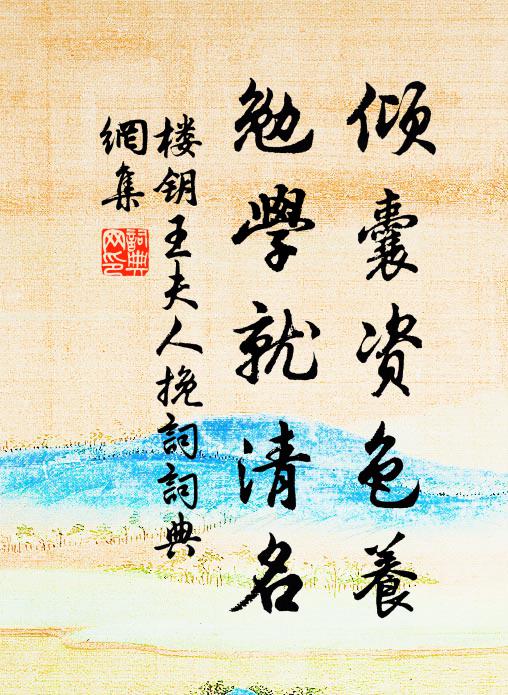 倾囊资色养
勉學就清名
楼钥王夫人挽詞詞典
網集
詞典網印